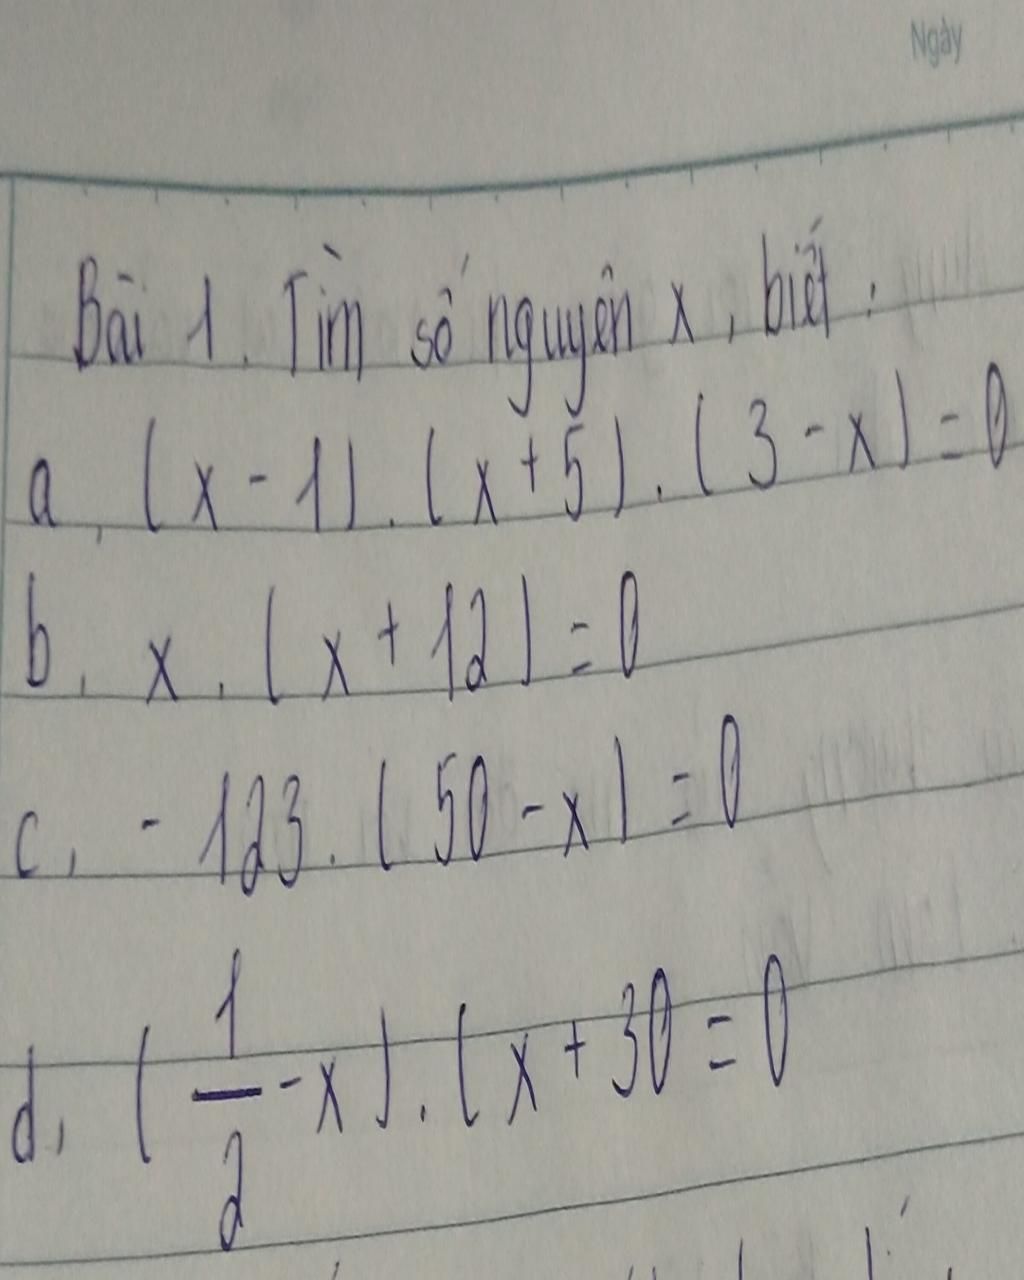 Ngày
Bài 1. Tìm số nguyên x, biết:
a, (x - 1). (x + 5). (3 - x) = 0
b, x. (x + 12) = 0
c, - 123. (50 - x) = 0
d, (1/2 - x). (x + 30 = 0